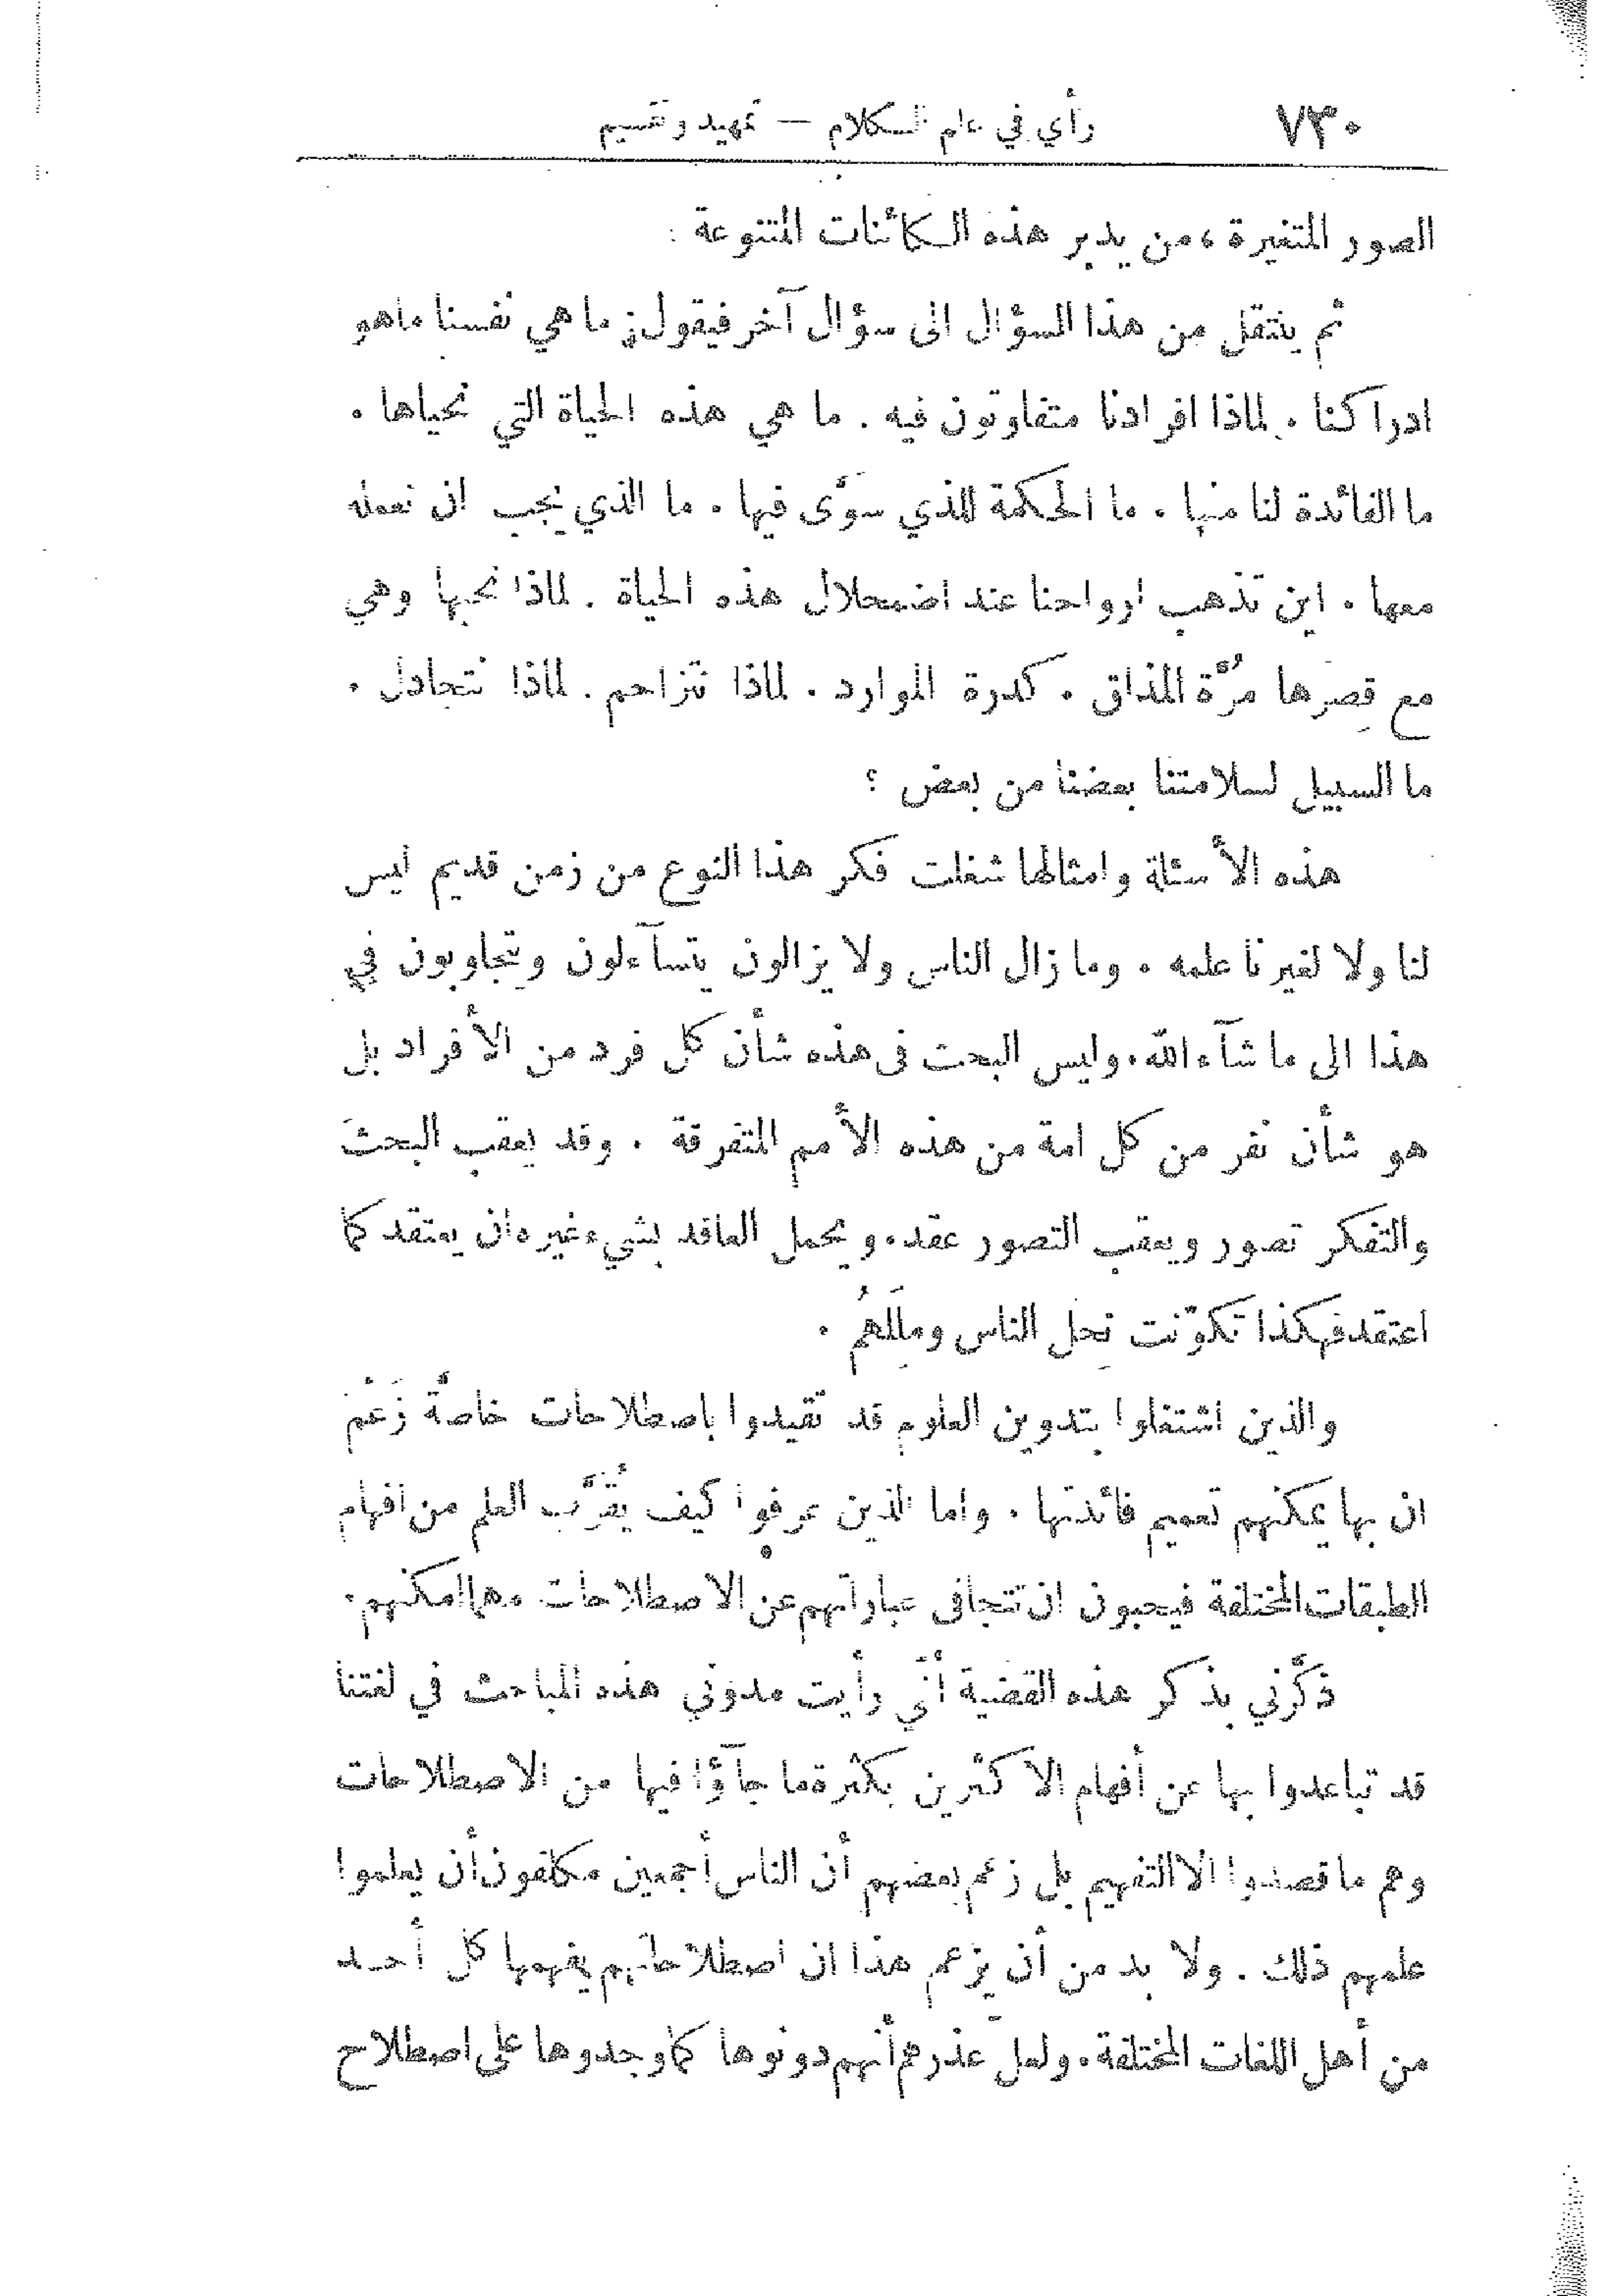 ٧٣٠
رأي في علم الكلام — تمهيد وتقسيم
الصور المتغيرة، من يدبر هذه الكائنات المتنوعة :
ثم ينتقل من هذا السؤال الى سؤال آخر فيقول: ما هي نفسنا ما هو
ادراكنا . لماذا افرادنا متفاوتون فيه . ما هي هذه الحياة التي نحياها .
ما الفائدة لنا منها . ما الحكمة للذي سوَّى فيها . ما الذي يجب ان نعمله
معها . اين تذهب ارواحنا عند اضمحلال هذه الحياة . لماذا نحبها وهي
مع قِصَرها مُرَّة المذاق . كدرة الموارد . لماذا نتزاحم . لماذا نتجادل .
ما السبيل لسلامتنا بعضنا من بعض ؟
هذه الأسئلة وامثالها شغلت فكر هذا النوع من زمن قديم ليس
لنا ولا لغيرنا علمه . وما زال الناس ولا يزالون يتسآءلون ويتجاوبون في
هذا الى ما شآء الله . وليس البحث فى هذه شأن كل فرد من الأفراد بل
هو شأن نفر من كل امة من هذه الأمم المتفرقة . وقد يعقب البحثَ
والتفكر تصور ويعقب التصور عقد . ويحمل العاقد بشيء غيره ان يعتقد كما
اعتقد فهكذا تكوّنت نِحل الناس ومِلَلهُم .
والذين اشتغلوا بتدوين العلوم قد تقيدوا باصطلاحات خاصةً زَعْمَ
ان بها يمكنهم تعميم فائدتها . واما الذين عرفوا كيف يُقرَّب العلم من افهام
الطبقات المختلفة فيحبون ان تتجافى عباراتهم عن الاصطلاحات مهما امكنهم .
ذكَّرني بذكر هذه القضية أنّي رأيت مدوني هذه المباحث في لغتنا
قد تباعدوا بها عن أفهام الاكثرين بكثرة ما جآؤا فيها من الاصطلاحات
وهم ما قصدوا الا التفهيم بل زعم بعضهم أن الناس أجمعين مكلفون أن يعلموا
علمهم ذلك . ولا بد من أن يزعم هذا ان اصطلاحاتهم يفهمها كل أحد
من أهل اللغات المختلفة . ولعلّ عذرهم أنهم دونوها كما وجدوها على اصطلاح